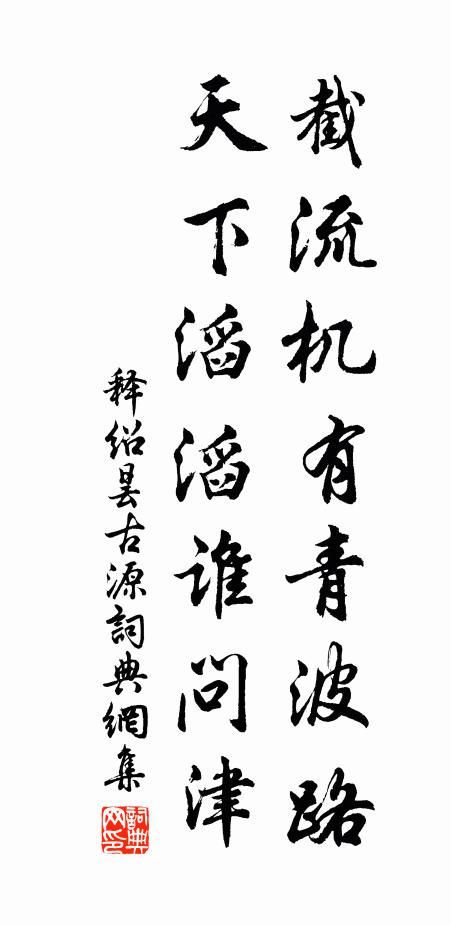 截流机有青波路
天下滔滔谁问津
释绍昙古源詞典網集
詞典
网印